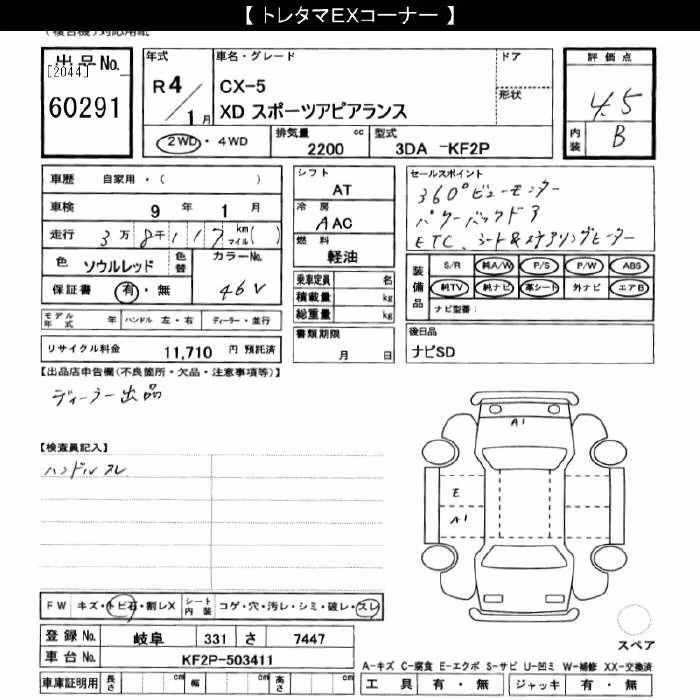 【 トレタマEXコーナー 】
出品No.
[2044]
60291
年式
R4/1月
車名・グレード
CX-5
XD スポーツアピアランス
ドア
形状
2WD・4WD
排気量 cc
2200
型式
3DA -KF2P
評価点
4.5
内装
B
車歴 自家用・( )
車検 9年 1月
走行 3万8千117 km マイル( )
色 ソウルレッド
色替
カラーNo.
46V
保証書 有・無
モデル年式 年
ハンドル 左・右
ディーラー・並行
リサイクル料金 11,710 円 預託済
シフト
AT
冷房
AAC
燃料
軽油
乗車定員 名
積載量 kg
総重量 kg
書類期限
月 日
セールスポイント
360°ビューモニター
パワーバックドア
ETC、シート&ステアリングヒーター
装備品
S/R 純A/W P/S P/W ABS
純TV 純ナビ 革シート 外ナビ エアB
ナビ型番:
後日品
ナビSD
【出品店申告欄(不良箇所・欠品・注意事項等)】
ディーラー出品
【検査員記入】
ハンドルスレ
A1
E
A1
FW キズ・トビ石・割レX
シート内装 コゲ・穴・汚レ・シミ・破レ・スレ
登録No. 岐阜 331 さ 7447
車台No. KF2P-503411
車庫証明用 長さ cm 幅 cm 高さ cm
スペア
A-キズ C-腐食 E-エクボ S-サビ U-凹ミ W-補修 XX-交換済
工具 有・無 ジャッキ 有・無